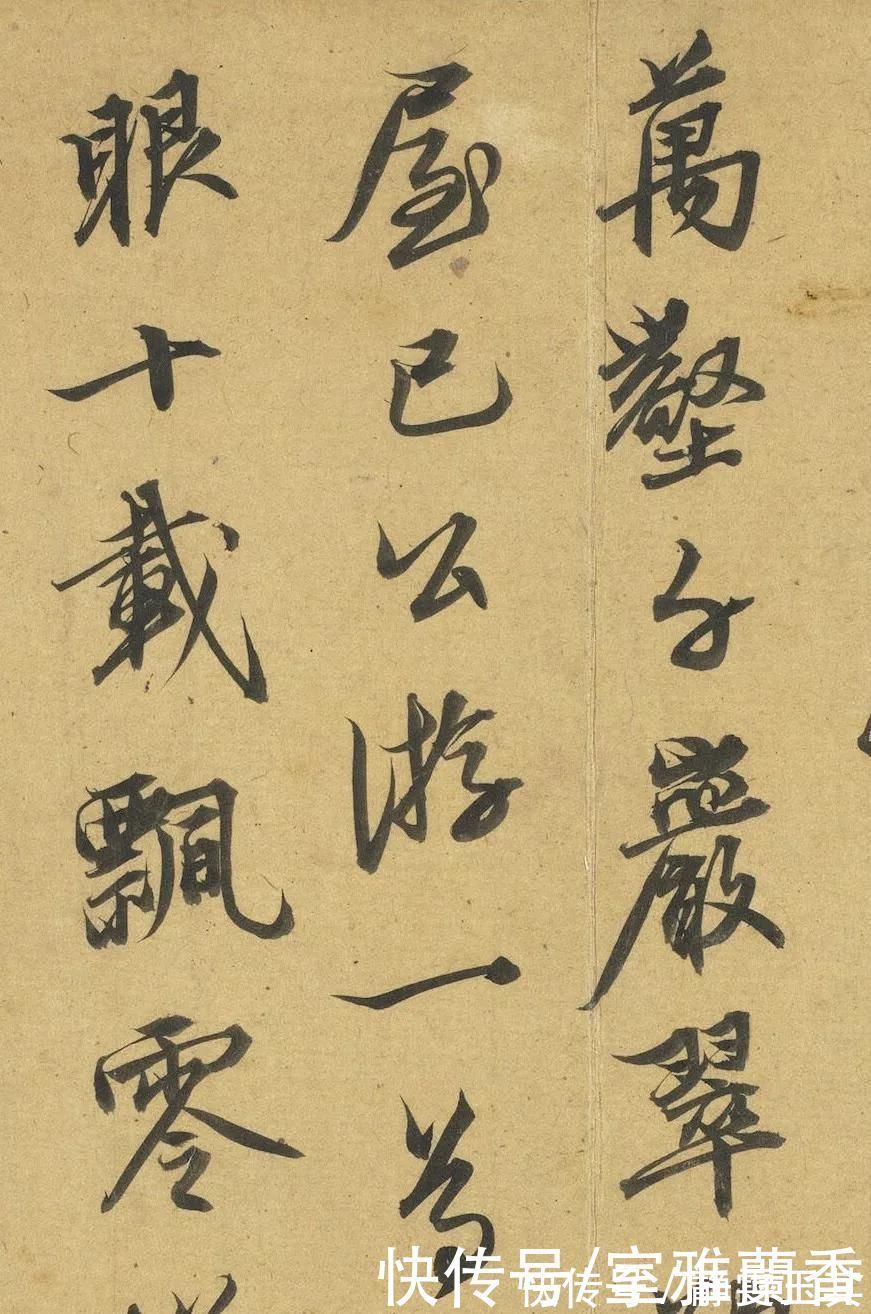 萬壑千巖翠
屋已公游一為
眼十載飄零
快传号/室雅蘭香